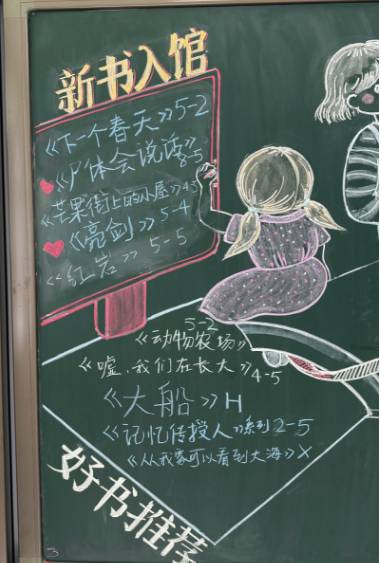 新书入馆
《下一个春天》5-2
《尸体会说话》5-5
《芒果街上的小屋》4-5
《亮剑》5-4
《红岩》5-5
5-2
《动物农场》
《嘘,我们在长大》4-5
《大船》H
《记忆传授人》系列2-5
《从我家可以看到大海》X
好书推荐
3